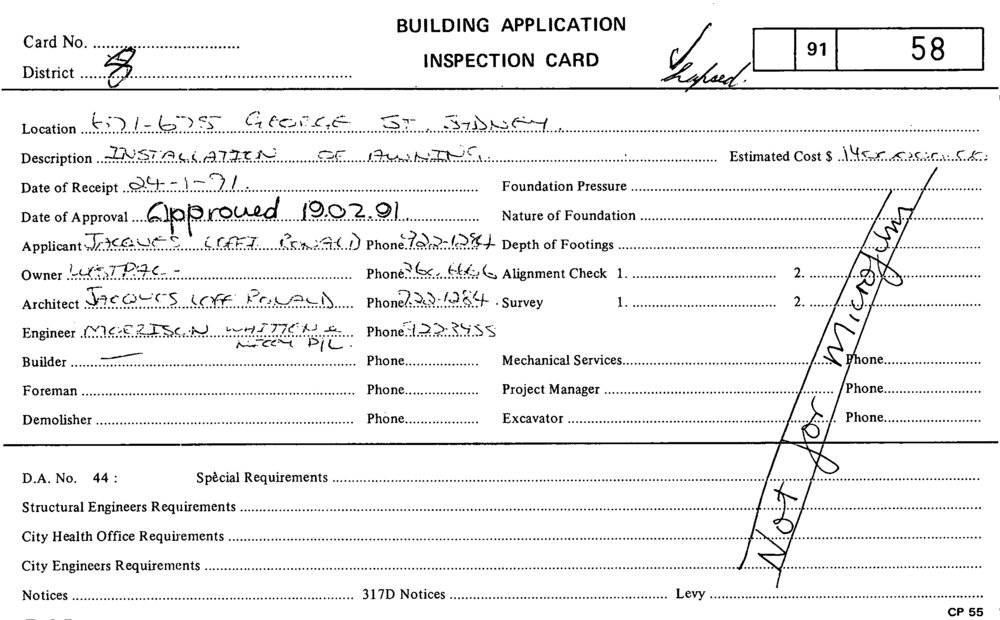 BUILDING APPLICATION
INSPECTION CARD
Card No.
District 8
Lapsed.
91 58
Location 671-675 GEORGE ST. SYDNEY.
Description INSTALLATION OF AWNING. Estimated Cost $
Date of Receipt 24-1-91. Foundation Pressure
Date of Approval Approved 19.02.91. Nature of Foundation
Applicant JACQUES LOFF RONALD Phone 922-1284 Depth of Footings
Owner WESTPAC - Phone Alignment Check 1. 2.
Architect JACQUES LOFF RONALD Phone 922-1284. Survey 1. 2.
Engineer MORRISON WHITTEN & Phone 922 3455
P/L.
Builder — Phone Mechanical Services Phone
Foreman Phone Project Manager Phone
Demolisher Phone Excavator Phone
Not for Microfilm
D.A. No. 44 : Special Requirements
Structural Engineers Requirements
City Health Office Requirements
City Engineers Requirements
Notices 317D Notices Levy
CP 55